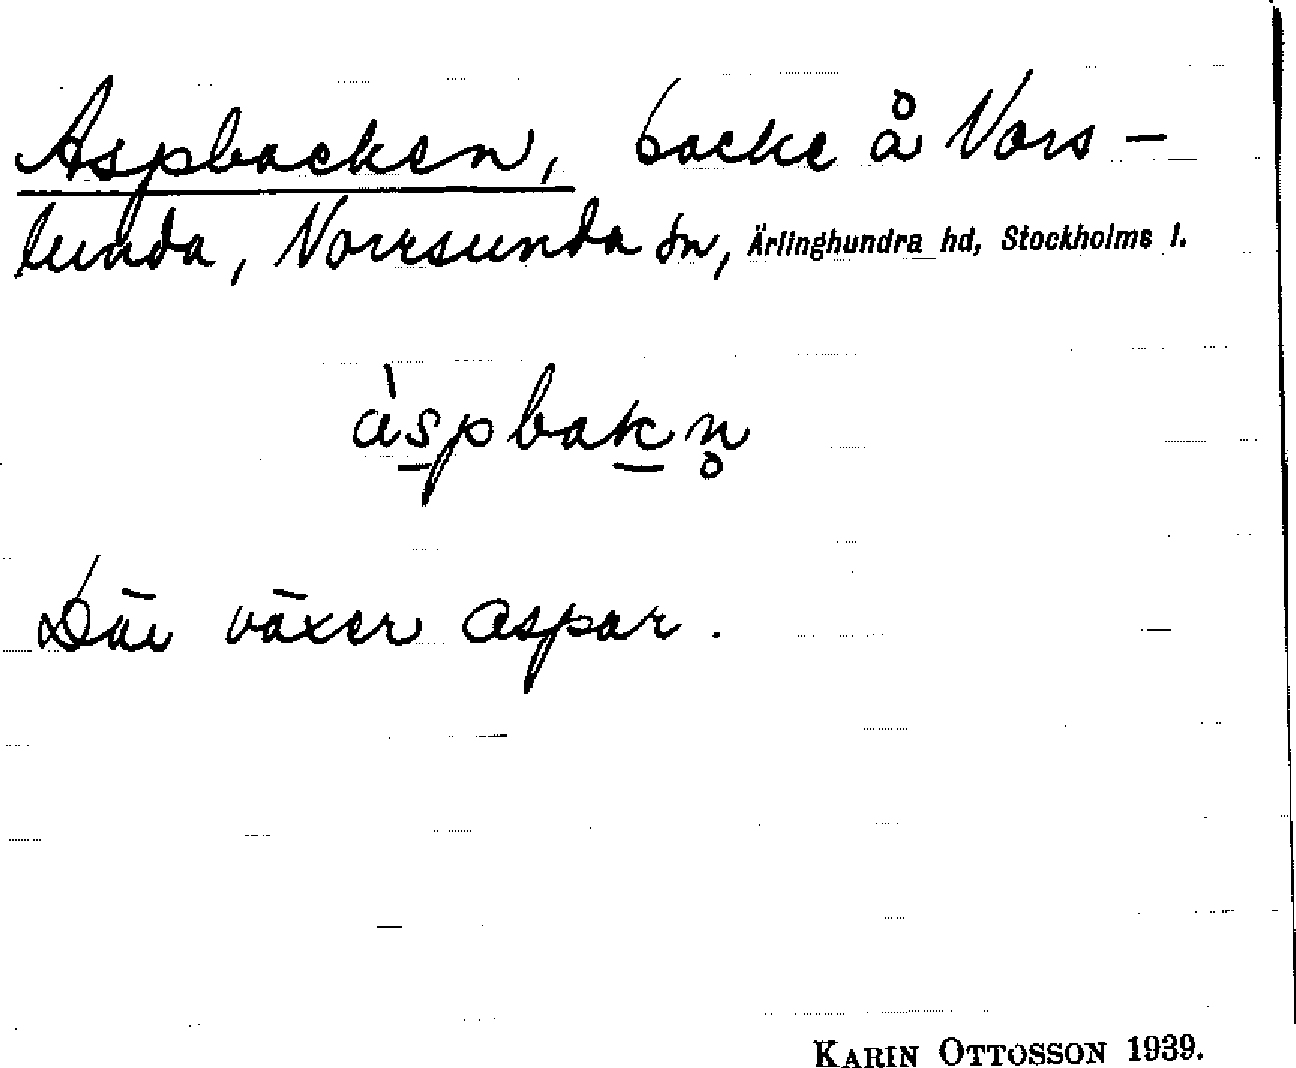 Aspbacken, backe å Nors-
lunda, Norrsunda sn, Ärlinghundra hd, Stockholms l.
àspbakn̥
Där växer aspar.
KARIN OTTOSSON 1939.